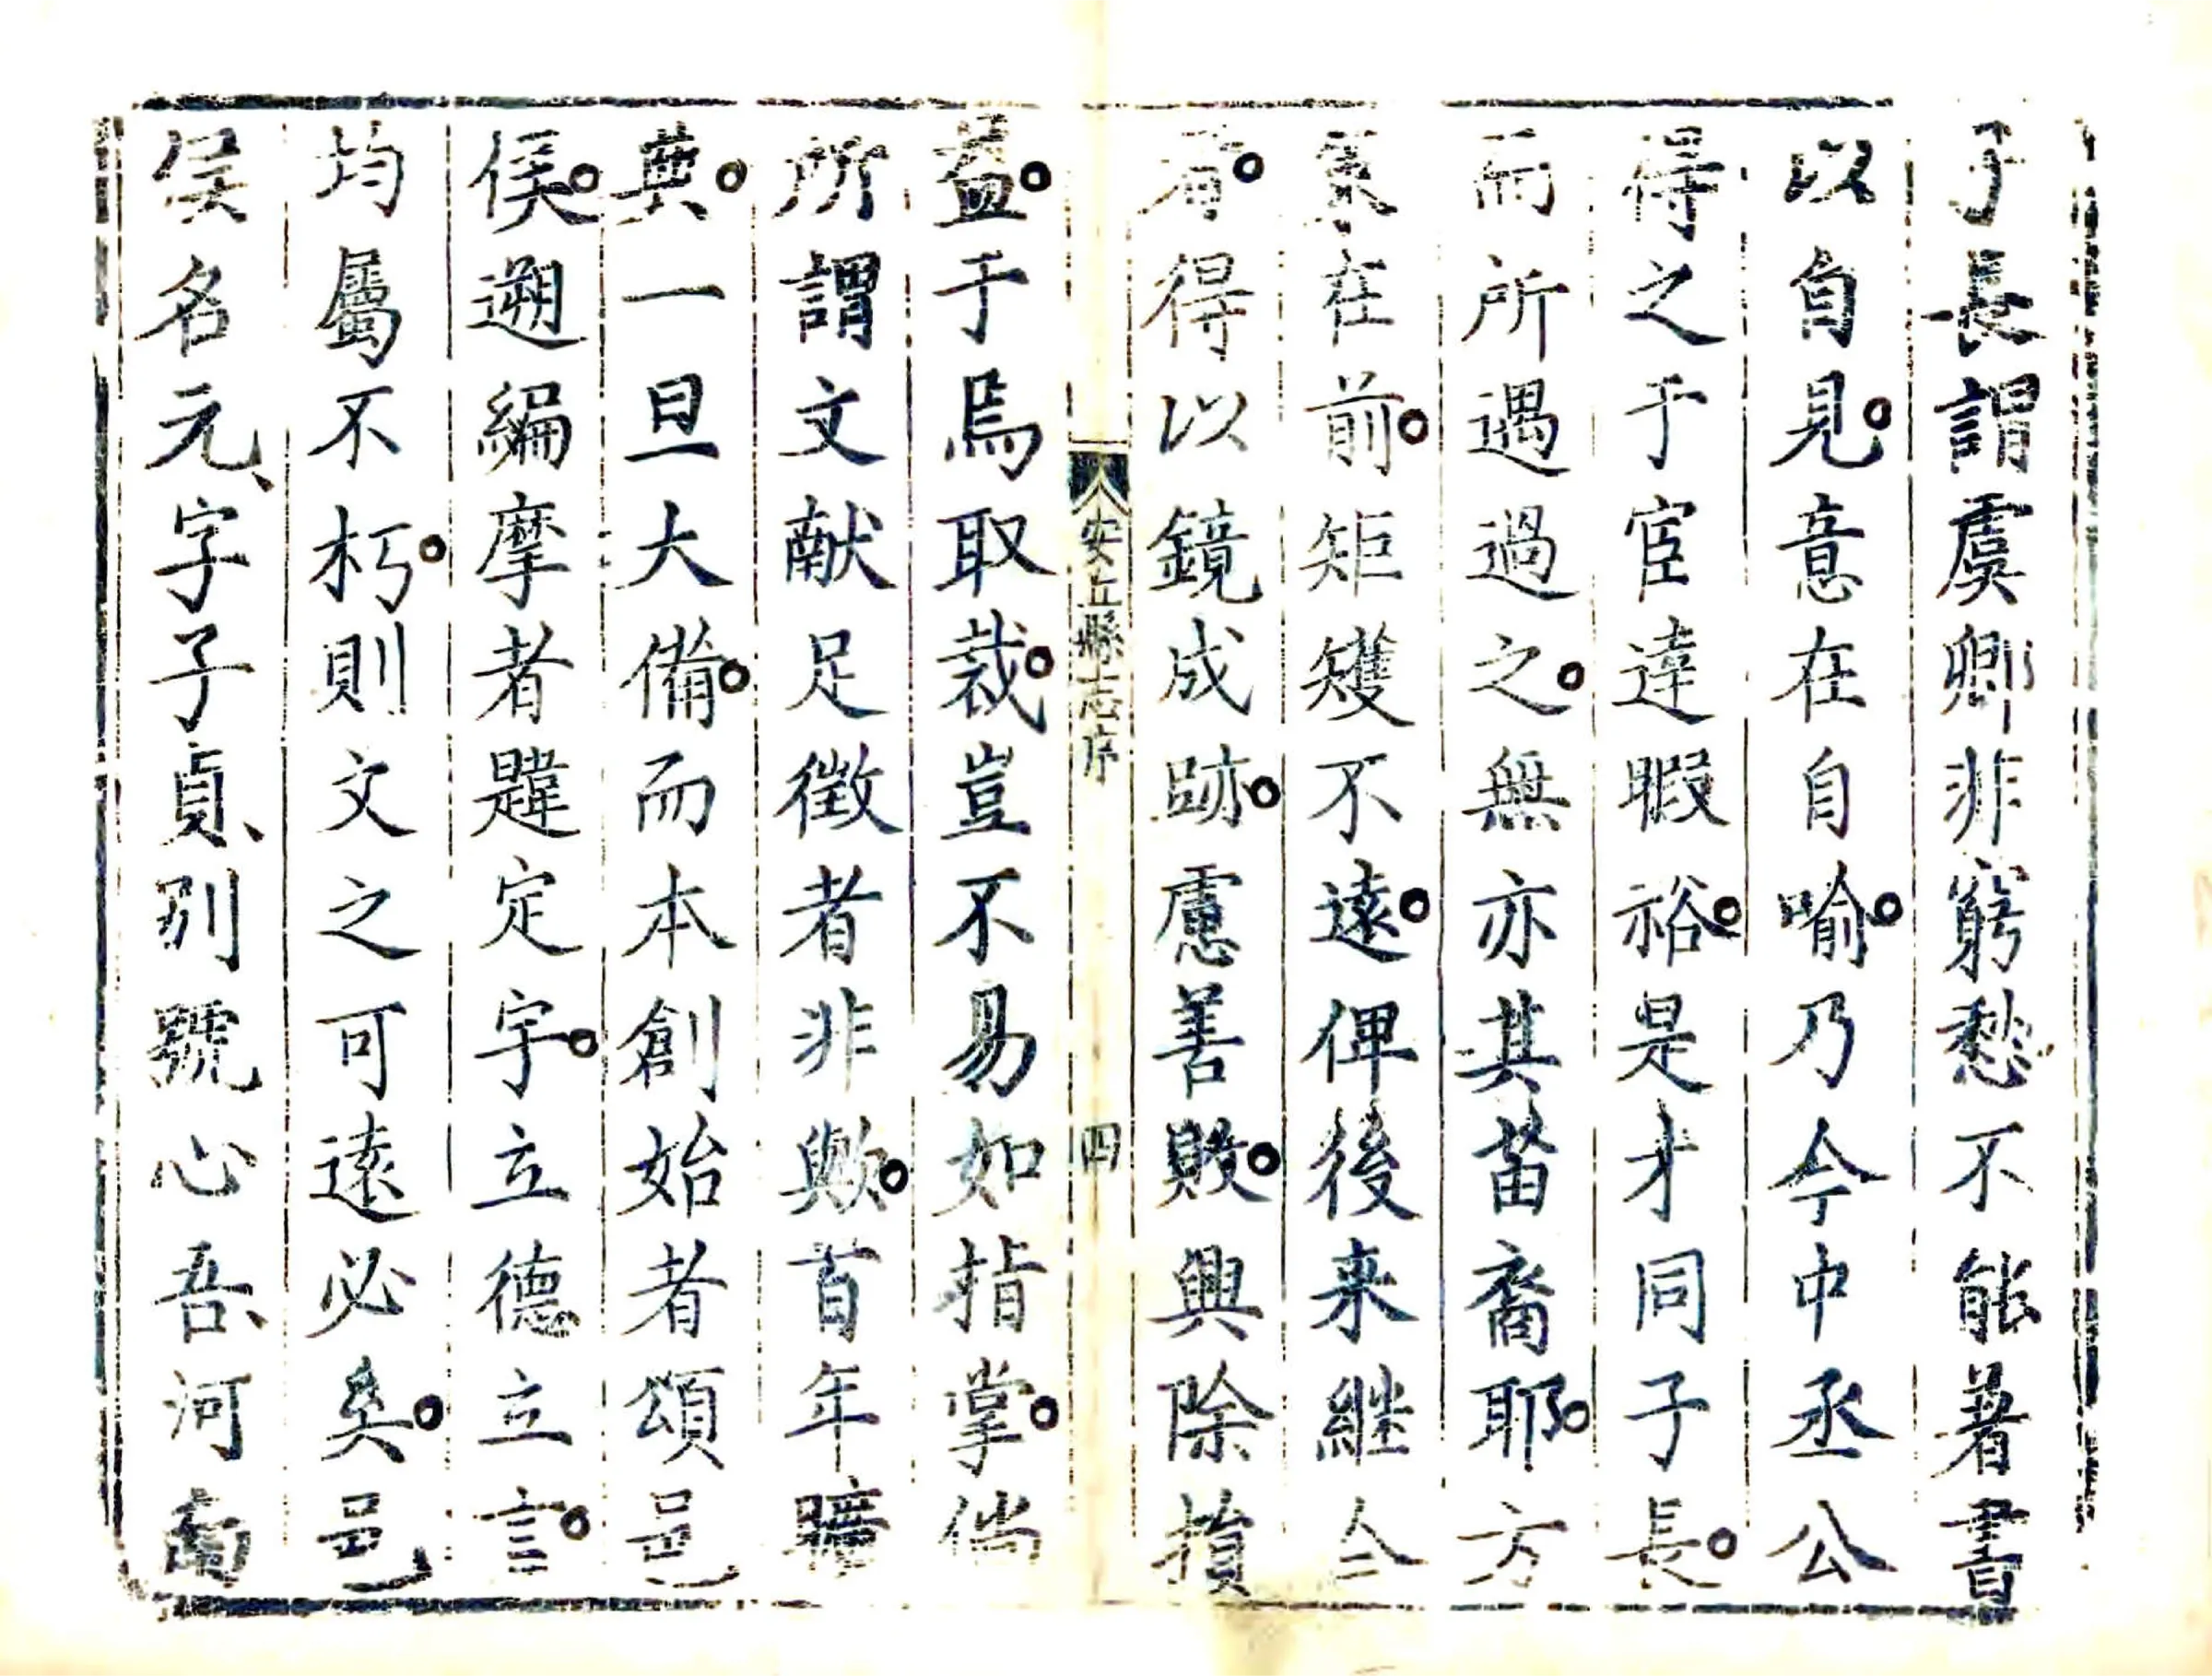 子長謂虞卿非窮愁不能著書
以自見意在自喻乃今中丞公
得之于宦達暇裕是才同子長
而所遇過之無亦其苗裔耶方
策在前矩矱不遠俾後来継仝
者得以鏡成跡慮善敗興除損
安丘縣志序
四
益于焉取裁豈不易如指掌倘
所謂文献足徴者非歟首年曠
典一旦大備而本創始者頌邑
侯遡編摩者韙定宇立德立言
均屬不朽則文之可遠必矣邑
侯名元字子貞別號心吾河南